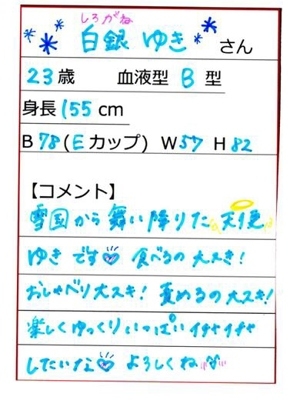 しろがね
白銀 ゆき さん
23歳 血液型 B 型
身長 155 cm
B 78 (E カップ) W 57 H 82
【コメント】
雪国から舞い降りた天使
ゆきです♡ 食べるの大スキ!
おしゃべり大スキ! 責めるの大スキ!
楽しくゆっくりいっぱいイチャイチャ
したいな♡ よろしくね